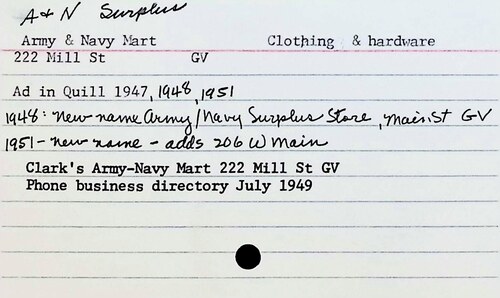 A & N Surplus
Army & Navy Mart Clothing & hardware
222 Mill St GV
Ad in Quill 1947, 1948, 1951
1948: New name Army/Navy Surplus Store, Main St GV
1951 - new name - adds 206 W Main
Clark's Army-Navy Mart 222 Mill St GV
Phone business directory July 1949